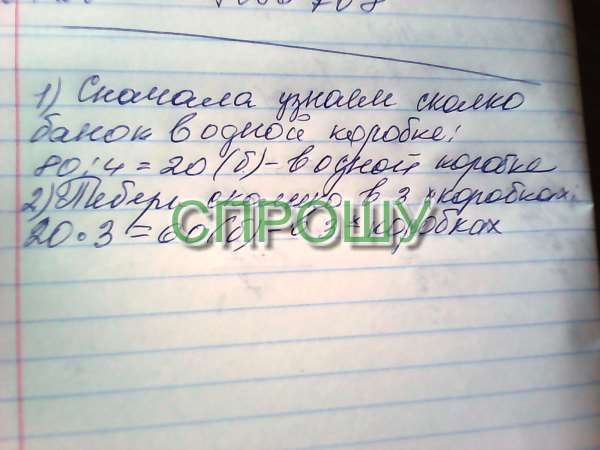 1) Сначала узнаем сколко
банок в одной коробке:
80:4=20 (б)-в одной коробке
2) Теберь сколько в 3 х коробках:
20•3=60(б)-в 3х коробках
СПРОШУ